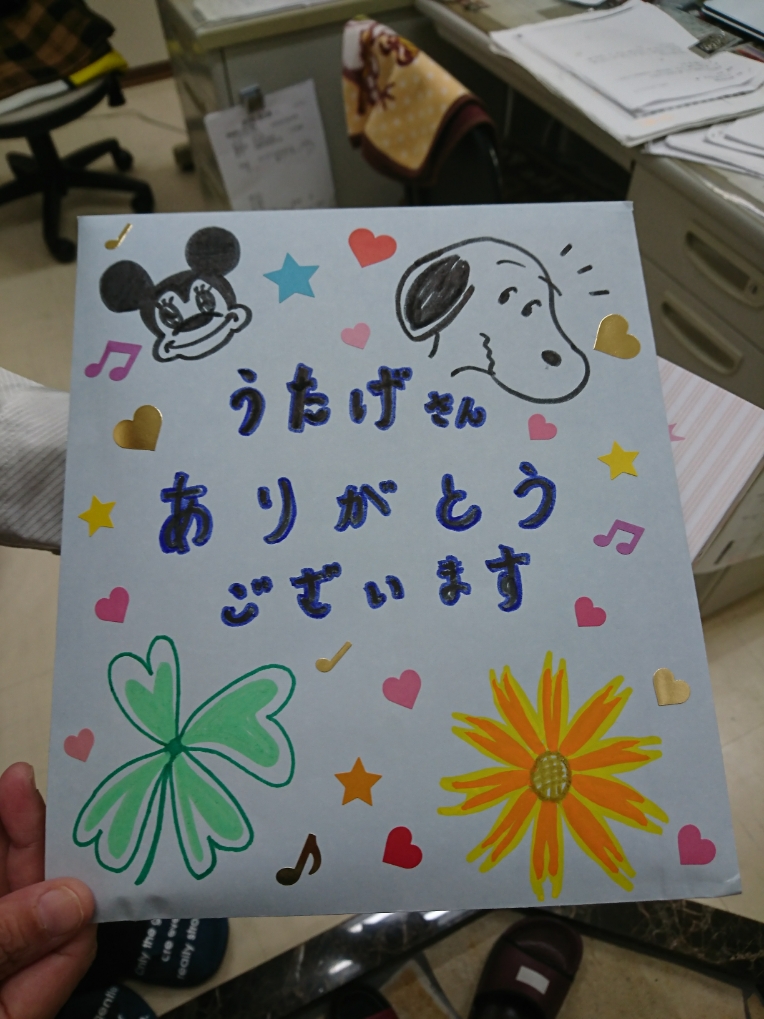 うたげさん
ありがとう
ございます